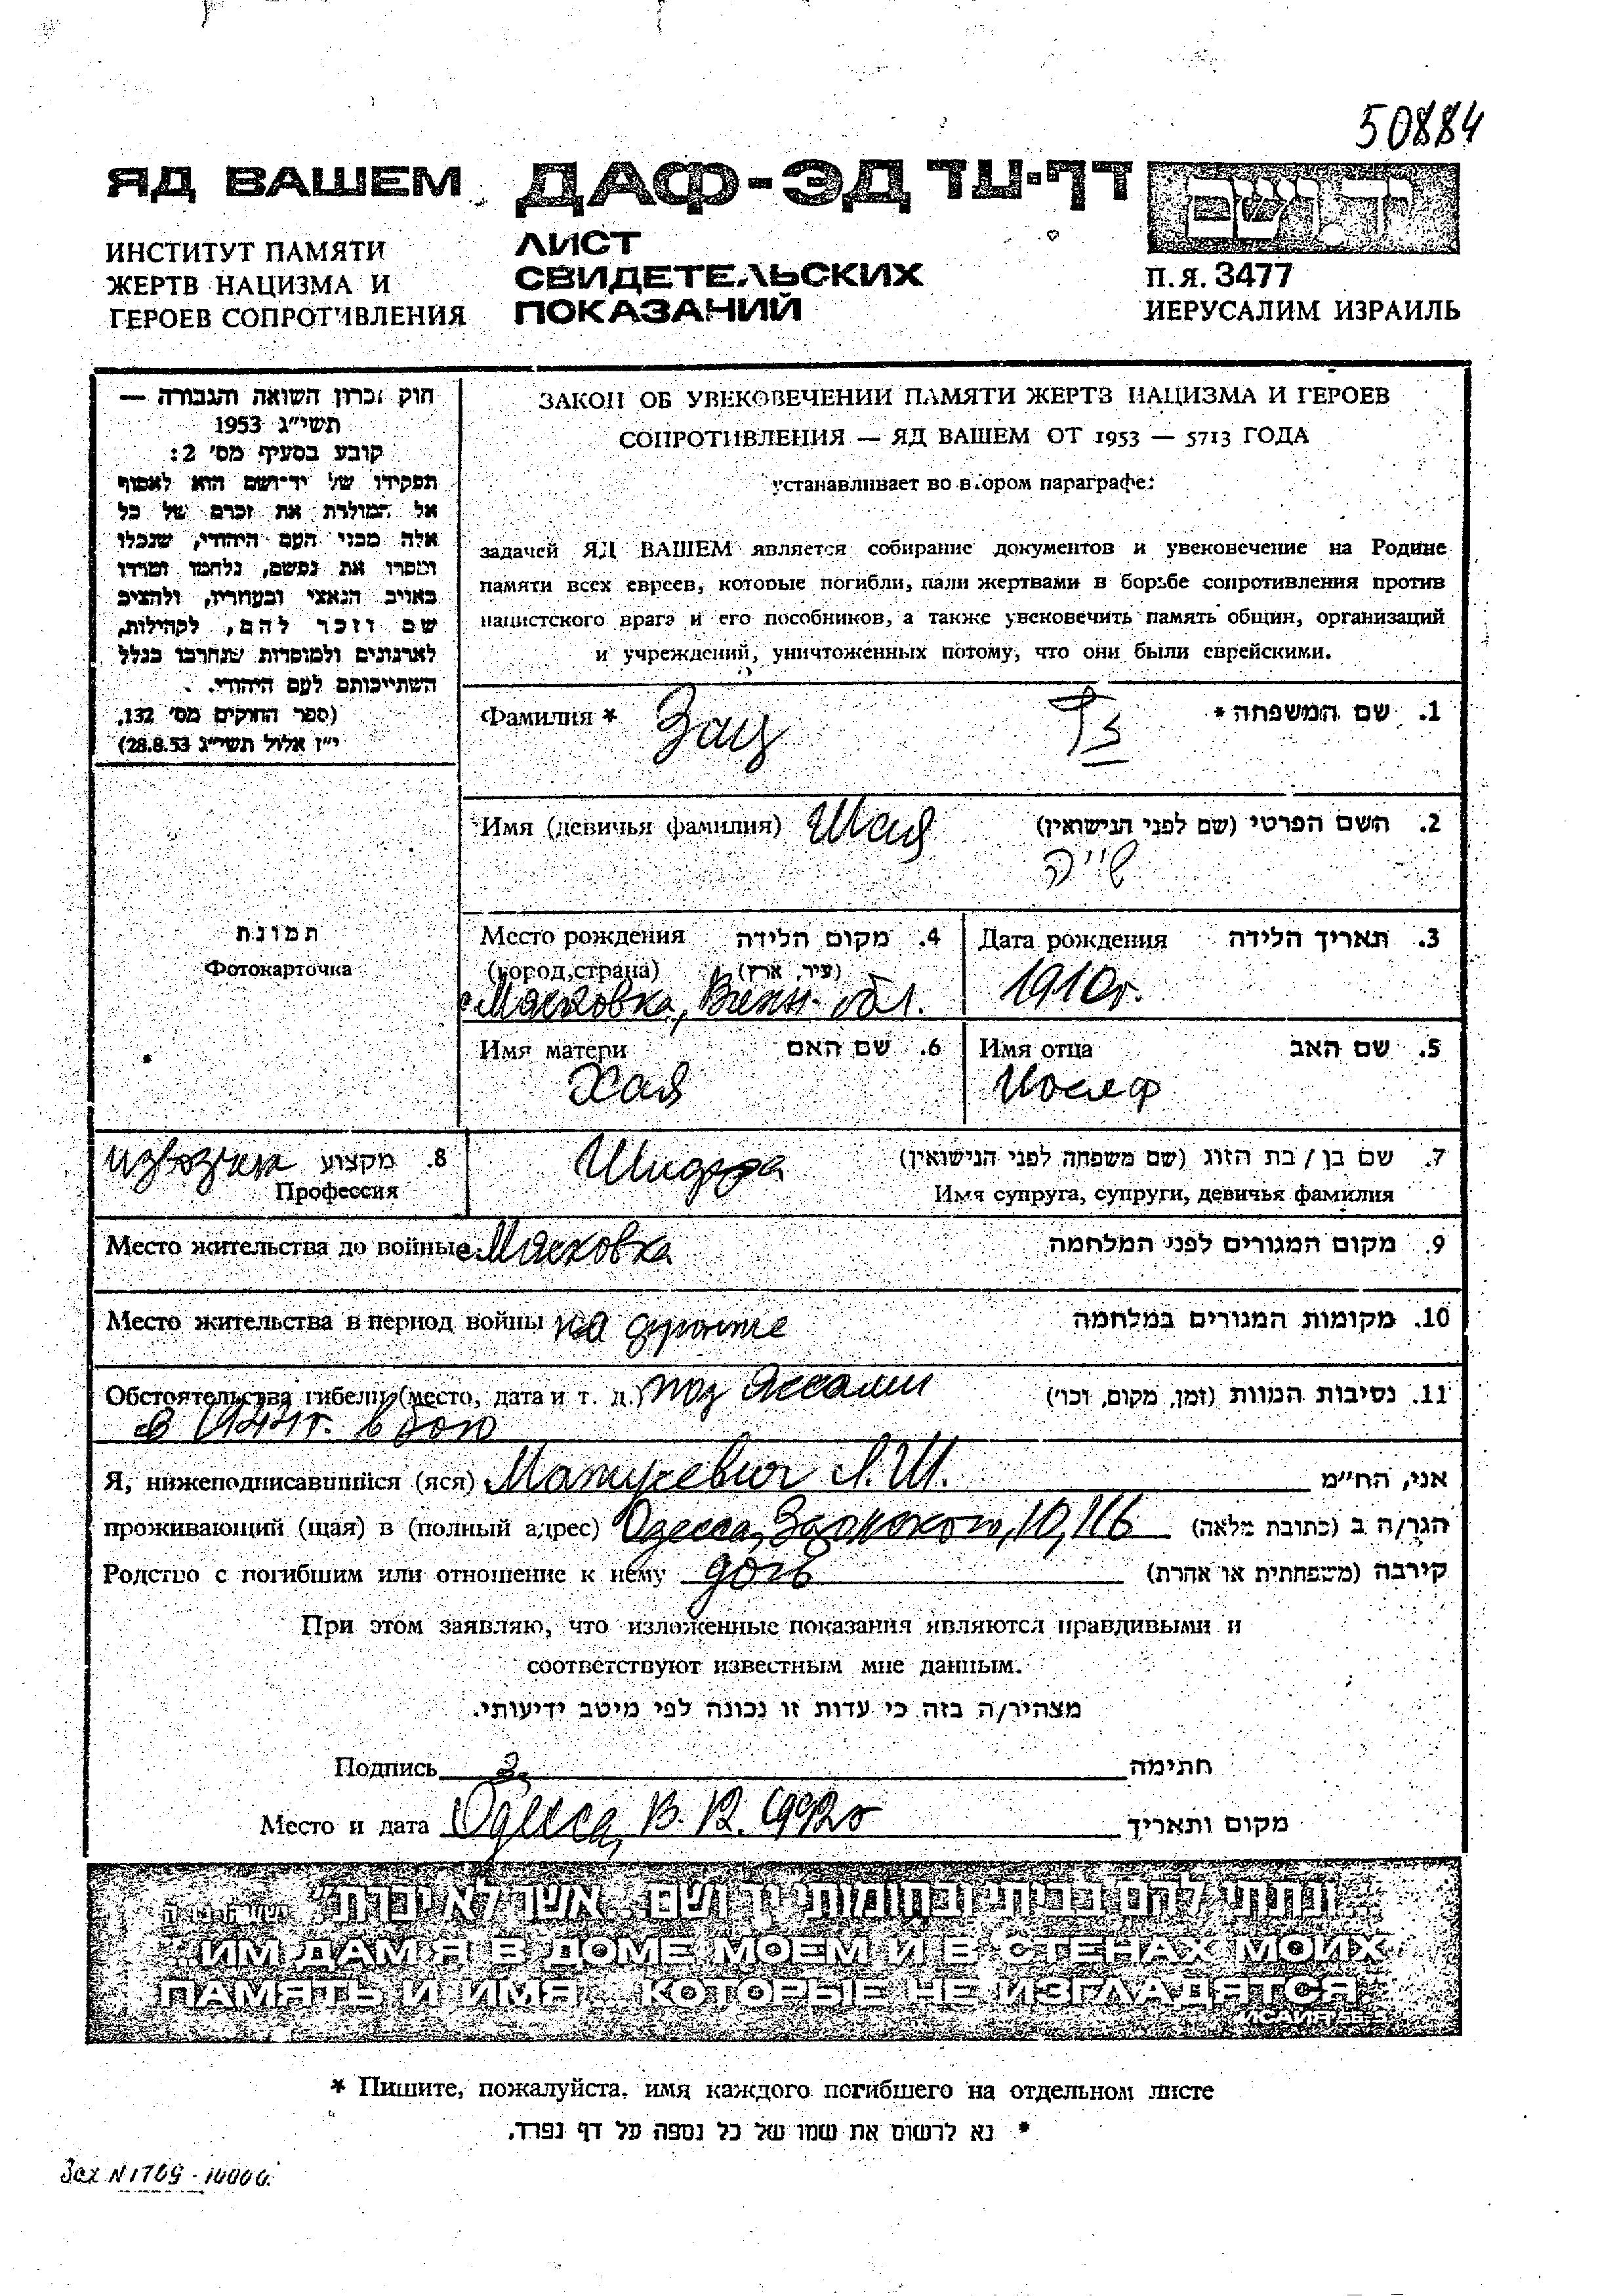 50884
ЯД ВАШЕМ ДАФ-ЭД דף-עד יד ושם
ИНСТИТУТ ПАМЯТИ
ЖЕРТВ НАЦИЗМА И
ГЕРОЕВ СОПРОТИВЛЕНИЯ
ЛИСТ
СВИДЕТЕЛЬСКИХ
ПОКАЗАНИЙ
П.Я. 3477
ИЕРУСАЛИМ ИЗРАИЛЬ
חוק זכרון השואה והגבורה —
תשי״ג 1953
קובע בסעיף מס׳ 2:
תפקידו של יד־ושם הוא לאסוף
אל המולדת את זכרם של כל
אלה מבני העם היהודי, שנפלו
ומסרו את נפשם, נלחמו ומרדו
באויב הנאצי ובעוזריו, ולהציב
שם וזכר להם, לקהילות,
לארגונים ולמוסדות שנחרבו בגלל
השתייכותם לעם היהודי.
(ספר החוקים מס׳ 132,
י״ז אלול תשי״ג 28.8.53)
ЗАКОН ОБ УВЕКОВЕЧЕНИИ ПАМЯТИ ЖЕРТВ НАЦИЗМА И ГЕРОЕВ
СОПРОТИВЛЕНИЯ — ЯД ВАШЕМ ОТ 1953 — 5713 ГОДА
устанавливает во втором параграфе:
задачей ЯД ВАШЕМ является собирание документов и увековечение на Родине
памяти всех евреев, которые погибли, пали жертвами в борьбе сопротивления против
нацистского врага и его пособников, а также увековечить память общин, организаций
и учреждений, уничтоженных потому, что они были еврейскими.
Фамилия * Зац זץ 1. שם המשפחה *
Имя (девичья фамилия) Шая 2. השם הפרטי (שם לפני הנישואין)
שייה
תמונת
Фотокарточка
Место рождения 4. מקום הלידה
(город, страна) (עיר, ארץ)
Мясковка, Винн. обл.
Дата рождения 3. תאריך הלידה
1910г.
Имя матери 6. שם האם
Хая
Имя отца 5. שם האב
Иосиф
извозчик 8. מקצוע
Профессия
7. שם בן / בת הזוג (שם משפחה לפני הנישואין)
Имя супруга, супруги, девичья фамилия
Место жительства до войны Мясковка 9. מקום המגורים לפני המלחמה
Место жительства в период войны на фронте 10. מקומות המגורים במלחמה
Обстоятельства гибели (место, дата и т. д.) под Яссами 11. נסיבות המוות (זמן, מקום, וכו׳)
в 1944г. в бою
Я, нижеподписавшийся (яся) Матусевич Л.Ш. אני, הח״מ
проживающий (щая) в (полный адрес) Одесса, 10, 116 הגר/ה ב (כתובת מלאה)
Родство с погибшим или отношение к нему дочь קירבה (משפחתית או אחרת)
При этом заявляю, что изложенные показания являются правдивыми и
соответствуют известным мне данным.
מצהיר/ה בזה כי עדות זו נכונה לפי מיטב ידיעותי.
Подпись חתימה
Место и дата Одесса, 13. 12. 1992г מקום ותאריך
״...ונתתי להם בביתי ובחומותי יד ושם... אשר לא יכרת״
"...ИМ ДАМ Я В ДОМЕ МОЕМ И В СТЕНАХ МОИХ
ПАМЯТЬ И ИМЯ... КОТОРЫЕ НЕ ИЗГЛАДЯТСЯ."
* Пишите, пожалуйста, имя каждого погибшего на отдельном листе
* נא לרשום את שמו של כל נספה על דף נפרד.
Зак N 1769 - 10000